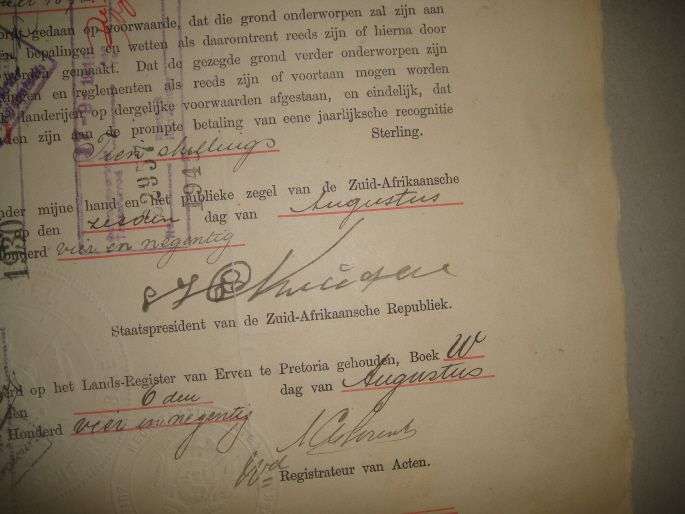 gedaan op voorwaarde, dat die grond onderworpen zal zijn aan
bepalingen en wetten als daaromtrent reeds zijn of hierna door
worden gemaakt. Dat de gezegde grond verder onderworpen zijn
en reglementen als reeds zijn of voortaan mogen worden
landerijen op dergelijke voorwaarden afgestaan, en eindelijk, dat
zijn aan de prompte betaling van eene jaarlijksche recognitie
Tien shillings Sterling.
2957
194
1930
mijne hand en het publieke zegel van de Zuid-Afrikaansche
op den zesden dag van Augustus
Honderd vier en negentig
Staatspresident van de Zuid-Afrikaansche Republiek.
op het Lands-Register van Erven te Pretoria gehouden, Boek W
6 den dag van Augustus
Honderd vier en negentig
Registrateur van Acten.